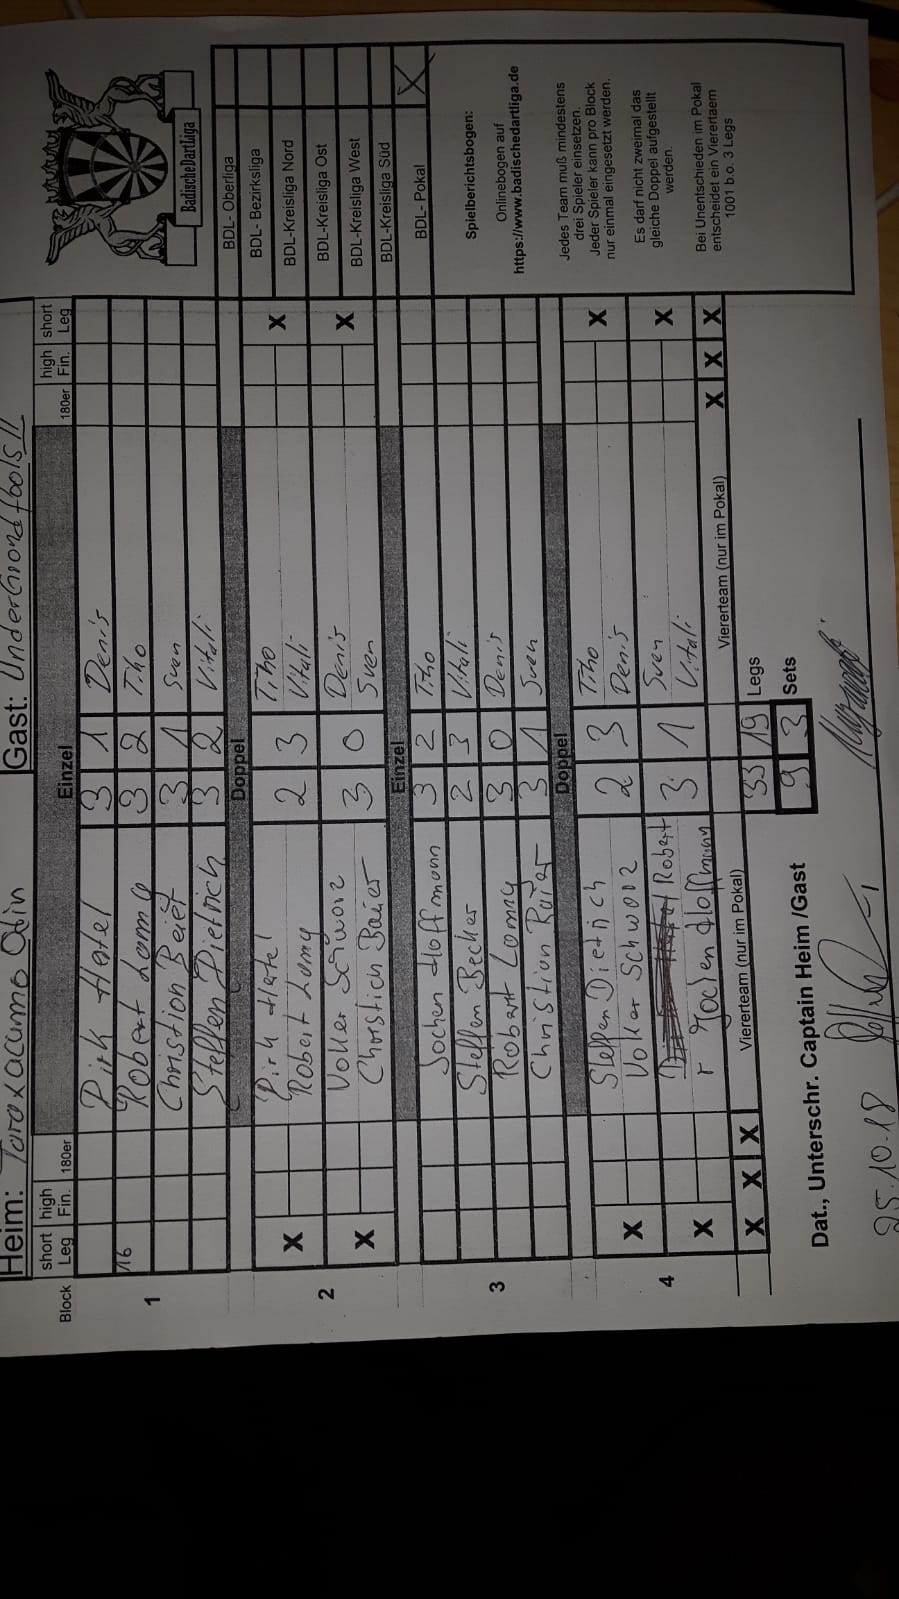 Heim: Taraxacum Odin Gast: UnderGrond fools!!
Block short Leg high Fin. 180er Einzel 180er high Fin. short Leg
1
Dirk Hatel 3 1 Denis
16 Robert Lamy 3 2 Tiho
Christian Beier 3 1 Sven
Steffen Dietrich 3 2 Vitali
Doppel
2
X Dirk Hatel 2 3 Tiho X
Robert Lamy Vitali
X Volker Schwarz 3 0 Denis X
Christian Baier Sven
Einzel
3
Jochen Hoffmann 3 2 Tiho
Steffen Becker 2 3 Vitali
Robert Lamy 3 0 Denis
Christian Baier 3 1 Sven
Doppel
4
X Steffen Dietrich 2 3 Tiho X
Volker Schwarz Denis
X Robert 3 1 Sven X
Jochen Hoffmann Vitali
Viererteam (nur im Pokal) X X X
X X X Viererteam (nur im Pokal) 33 19 Legs
9 3 Sets
Dat., Unterschr. Captain Heim /Gast
25.10.18
BadischeDartLiga
BDL- Oberliga
BDL- Bezirksliga
BDL-Kreisliga Nord
BDL-Kreisliga Ost
BDL-Kreisliga West
BDL-Kreisliga Süd
BDL- Pokal X
Spielberichtsbogen:
Onlinebogen auf
https://www.badischedartliga.de
Jedes Team muß mindestens
drei Spieler einsetzen.
Jeder Spieler kann pro Block
nur einmal eingesetzt werden.
Es darf nicht zweimal das
gleiche Doppel aufgestellt
werden.
Bei Unentschieden im Pokal
entscheidet ein Viererteaem
1001 b.o. 3 Legs